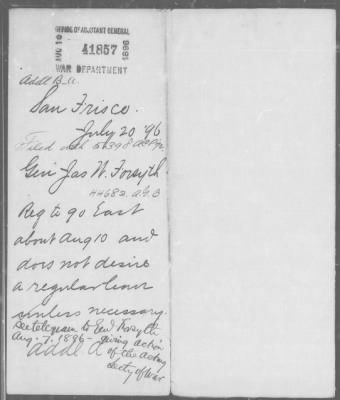 OFFICE OF ADJUTANT GENERAL
AUG 10 41857 1896
WAR DEPARTMENT
Addl B.
San Frisco.
July 20 '96
Filed with 51398
Gen Jas W. Forsyth
44682 A.G.O
Req to go East
about Aug 10 and
does not desire
a regular leave
unless necessary.
See telegram to Gen'l Forsyth
Aug. 7. 1896 - giving action
of the Acting
Addl A
Secty of War